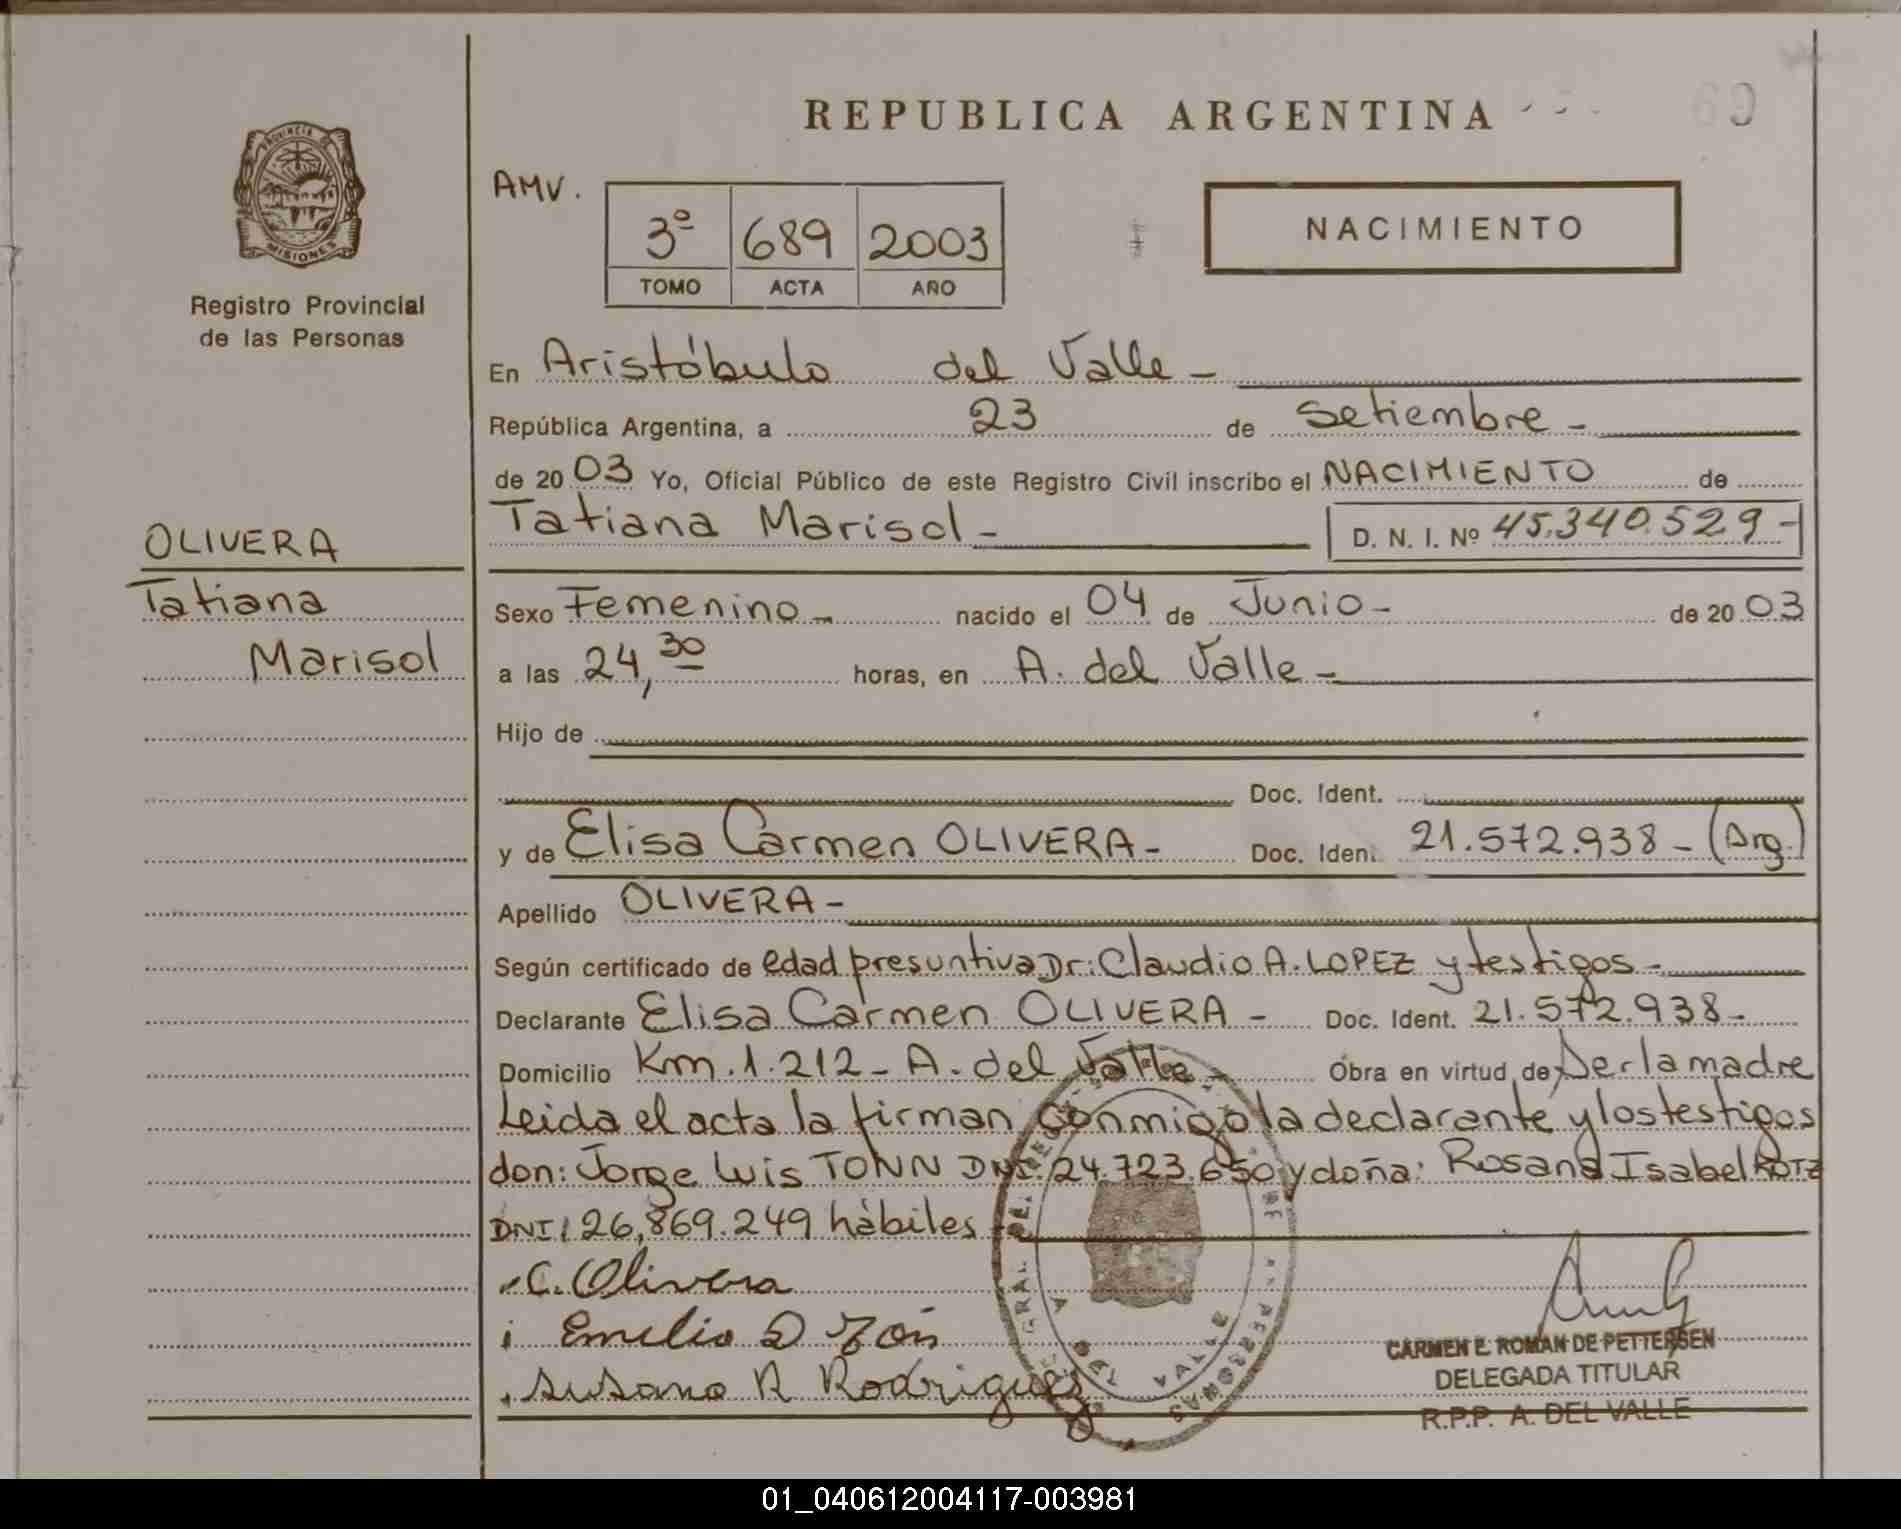 REPUBLICA ARGENTINA
69
PROVINCIA DE
MISIONES
Registro Provincial
de las Personas
AMV.
3º 689 2003
TOMO ACTA AÑO
NACIMIENTO
En Aristóbulo del Valle -
República Argentina, a 23 de Setiembre -
de 2003 Yo, Oficial Público de este Registro Civil inscribo el NACIMIENTO de
Tatiana Marisol - D. N. I. Nº 45.340.529 -
OLIVERA
Tatiana
Marisol
Sexo Femenino - nacido el 04 de Junio - de 2003
a las 24,30 horas, en A. del Valle -
Hijo de
Doc. Ident.
y de Elisa Carmen OLIVERA - Doc. Iden. 21.572.938 - (Arg.)
Apellido OLIVERA -
Según certificado de edad presuntiva Dr: Claudio A. LOPEZ y testigos -
Declarante Elisa Carmen OLIVERA - Doc. Ident. 21.572.938 -
Domicilio Km. 1.212 - A. del Valle - Obra en virtud de Ser la madre
Leida el acta la firman conmigo la declarante y los testigos
don: Jorge Luis TONN DNI. 24.723.650 y doña: Rosana Isabel
DNI. 26.869.249 hábiles
C. Olivera
Emilio
Susana R Rodriguez
A DEL VALLE
CARMEN E. ROMAN DE PETTERSEN
DELEGADA TITULAR
R.P.P. A. DEL VALLE
01_040612004117-003981